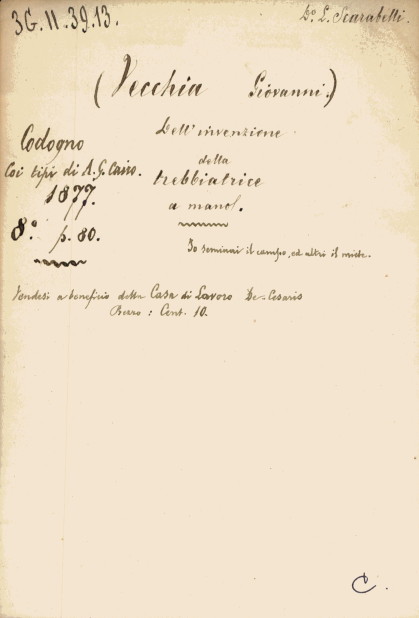 3G. II. 39. 13.
Do. L. Scarabelli.
(Vecchia Giovanni.)
Dell'invenzione
della
trebbiatrice
a mano.
Codogno
Coi tipi di A. G. Cairo.
1877.
8.° p. 80.
Io seminai il campo, ed altri il miete.
Vendesi a beneficio della Casa di Lavoro De-Cesaris
: Cent. 10.
C.